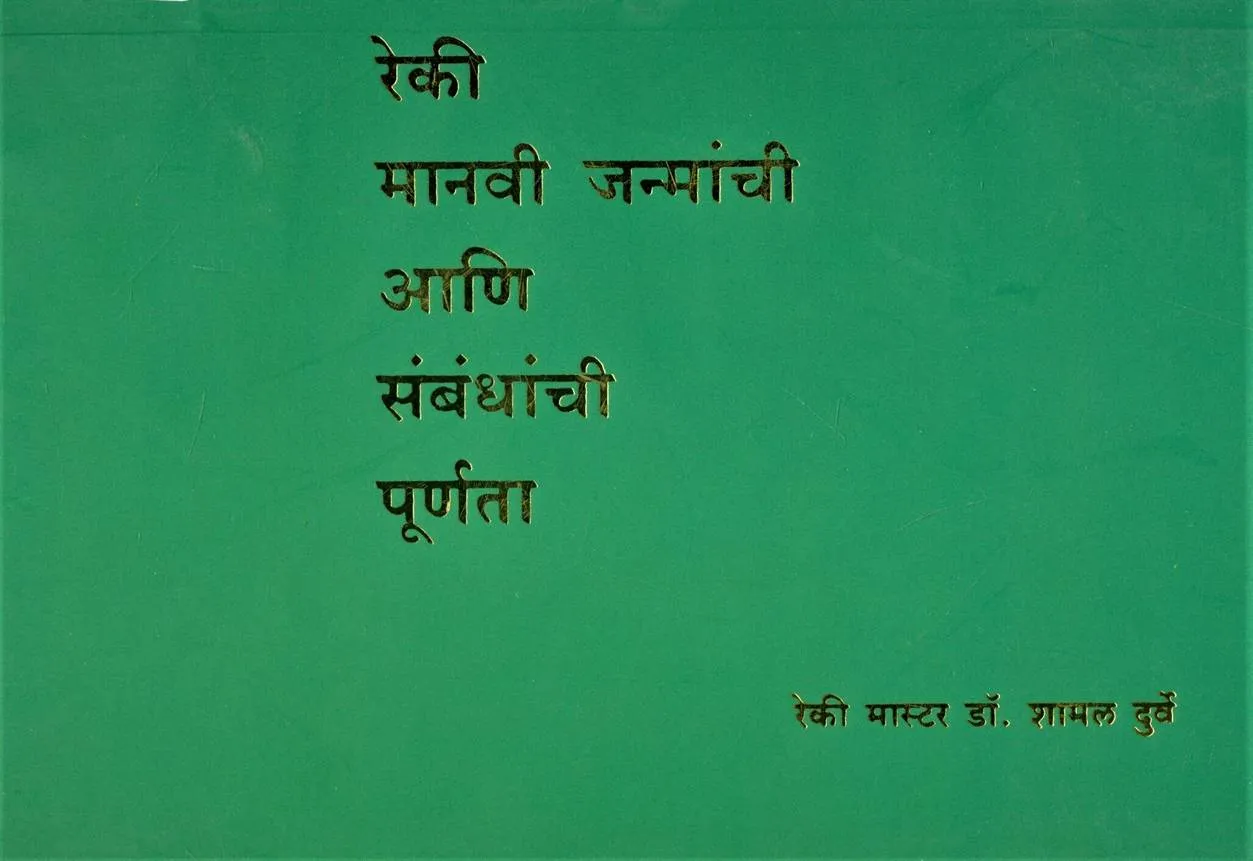 रेकी
मानवी जन्मांची
आणि
संबंधांची
पूर्णता
रेकी मास्टर डॉ. शामल दुर्वे